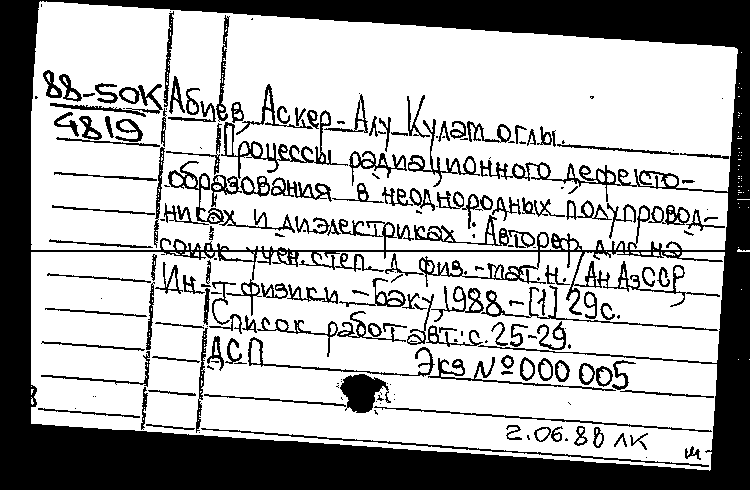 88-50К
4819
Абиев, Аскер-Алу Кулат оглы.
Процессы радиационного дефекто-
образования в неоднородных полупровод-
никах и диэлектриках : Автореф. дис. на
соиск. учен. степ. д. физ.-мат. н. / Ан АзССР,
Ин-т физики. - Баку, 1988. - [1] 29с.
Список работ авт.: с. 25-29.
ДСП Экз № 000 005
2.06.88 ЛК